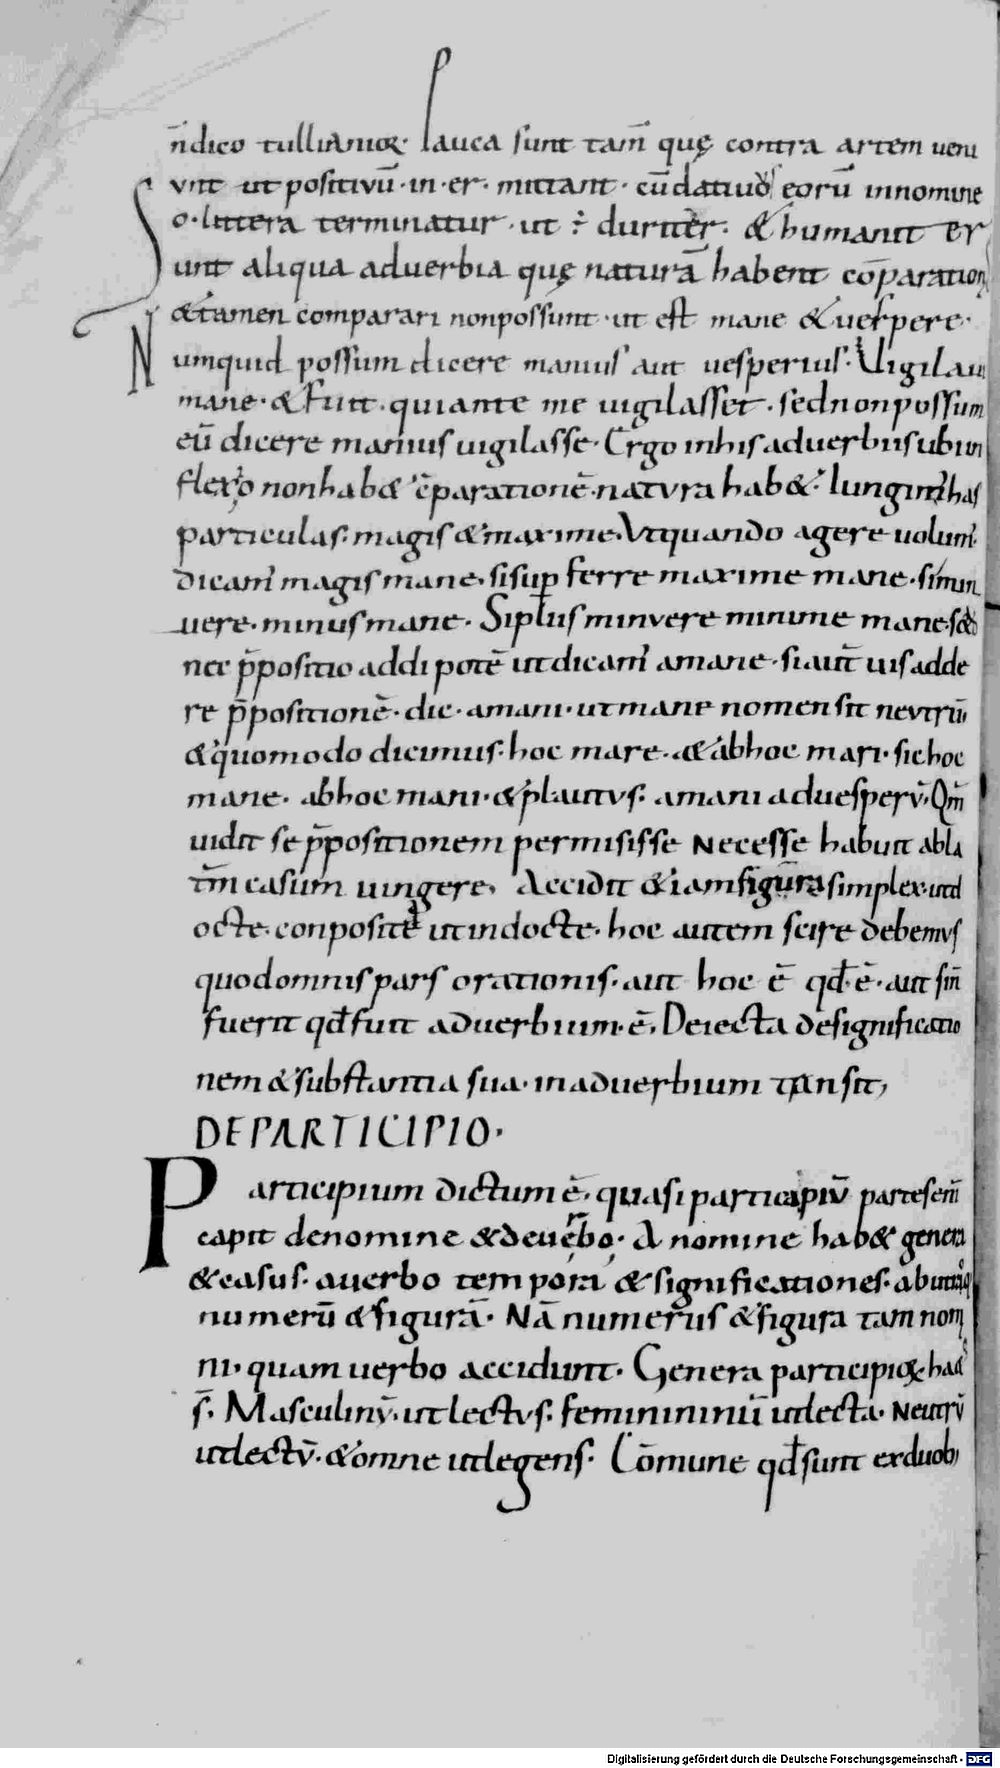 n̄ dico tullianior. Pauca sunt tam̄ quę contra artem ueni
unt ut positivū. in. er. mittant. cū datiuus eorū in nomine
o. littera terminatur. ut ÷ duriter. & humanit er
Sunt aliqua aduerbia quę naturā habent cōparation̄
& tamen comparari non possunt. ut est mane & uespere.
Numquid possum dicere maniusˈ aut uesperius. Uigilaui
mane. & fuit. qui ante me uigilasset. sed non possum
eū dicere manius uigilasse. Ergo in his aduerbiis ubi in
flexio non hab& cōparationē. natura hab&. Iungim̄ has
particulas. magis & maxime. Ut quando agere uolum̄.
dicam̄ magis mane. si sup ferre maxime mane. si min
uere. minus mane. Si plus minuere minime mane. sed
nec p̄positio addi potē ut dicam̄ amane. si aut̄ uis adde
re p̄positionē. dic. amani. ut mane nomen sit neutrū.
& quomodo dicimus. hoc mare. & abhoc mari. sic hoc
mane. abhoc mani. & plautus. amani ad uesperū. Qm̄
uidit se p̄positionem permisisse necesse habuit abla
tm̄ casum iungere. Accidit & iam figura simplex. ut d
octe. conposite ut indocte. hoc autem scire debemus
quod omnis pars orationis. aut hoc ē qđ ē. aut sin̄
fuerit qđ fuit aduerbium. ē. Deiecta de significatio
nem & substantia sua. in aduerbium transit,
DE PARTICIPIO.
Participium dictum ē. quasi particapiū partes em̄
capit denomine & de uerbo. A nomine hab& genera
& casus. auerbo tempora & significationes. ab utroq
numerū & figurā. Nā numerus & figura tam nom̄
ni. quam uerbo accidunt. Genera participioꝝ haec
s̄. Masculinū. ut lectus. femininū ut lecta. Neutrū
ut lectū. & omne ut legens. Cōmune qđ sunt ex duob;
Digitalisierung gefördert durch die Deutsche Forschungsgemeinschaft - DFG